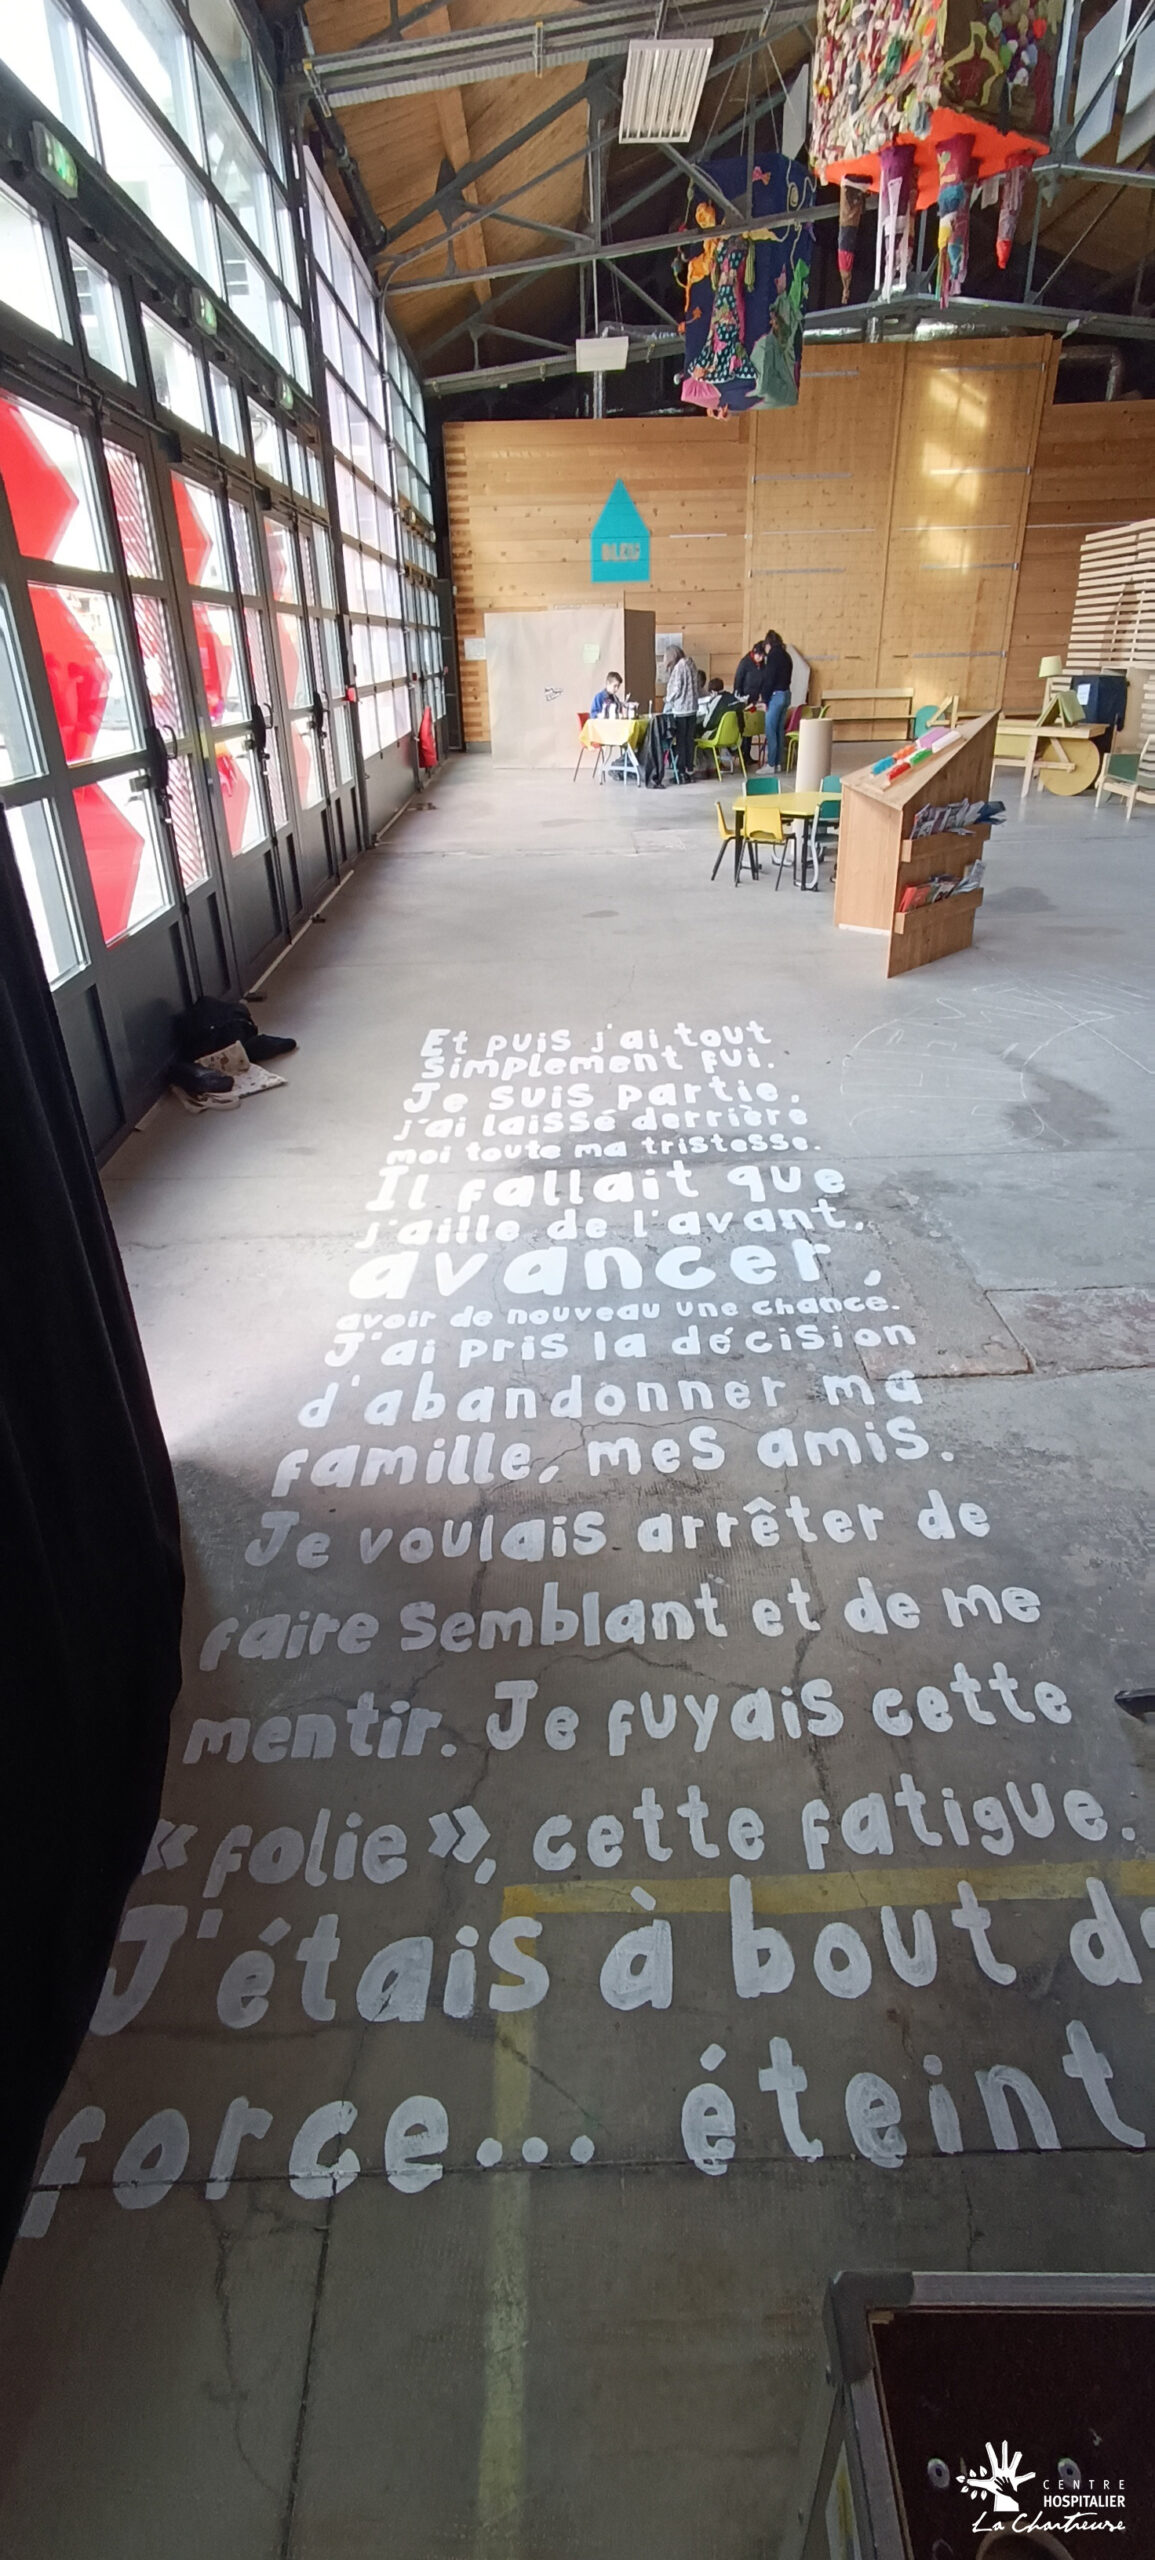 BLEU
Et puis j'ai tout
simplement fui.
Je suis partie,
j'ai laissé derrière
moi toute ma tristesse.
Il fallait que
j'aille de l'avant,
avancer,
avoir de nouveau une chance.
J'ai pris la décision
d'abandonner ma
famille, mes amis.
Je voulais arrêter de
faire semblant et de me
mentir. Je fuyais cette
« folie », cette fatigue.
J'étais à bout de
force... éteint
CENTRE
HOSPITALIER
La Chartreuse